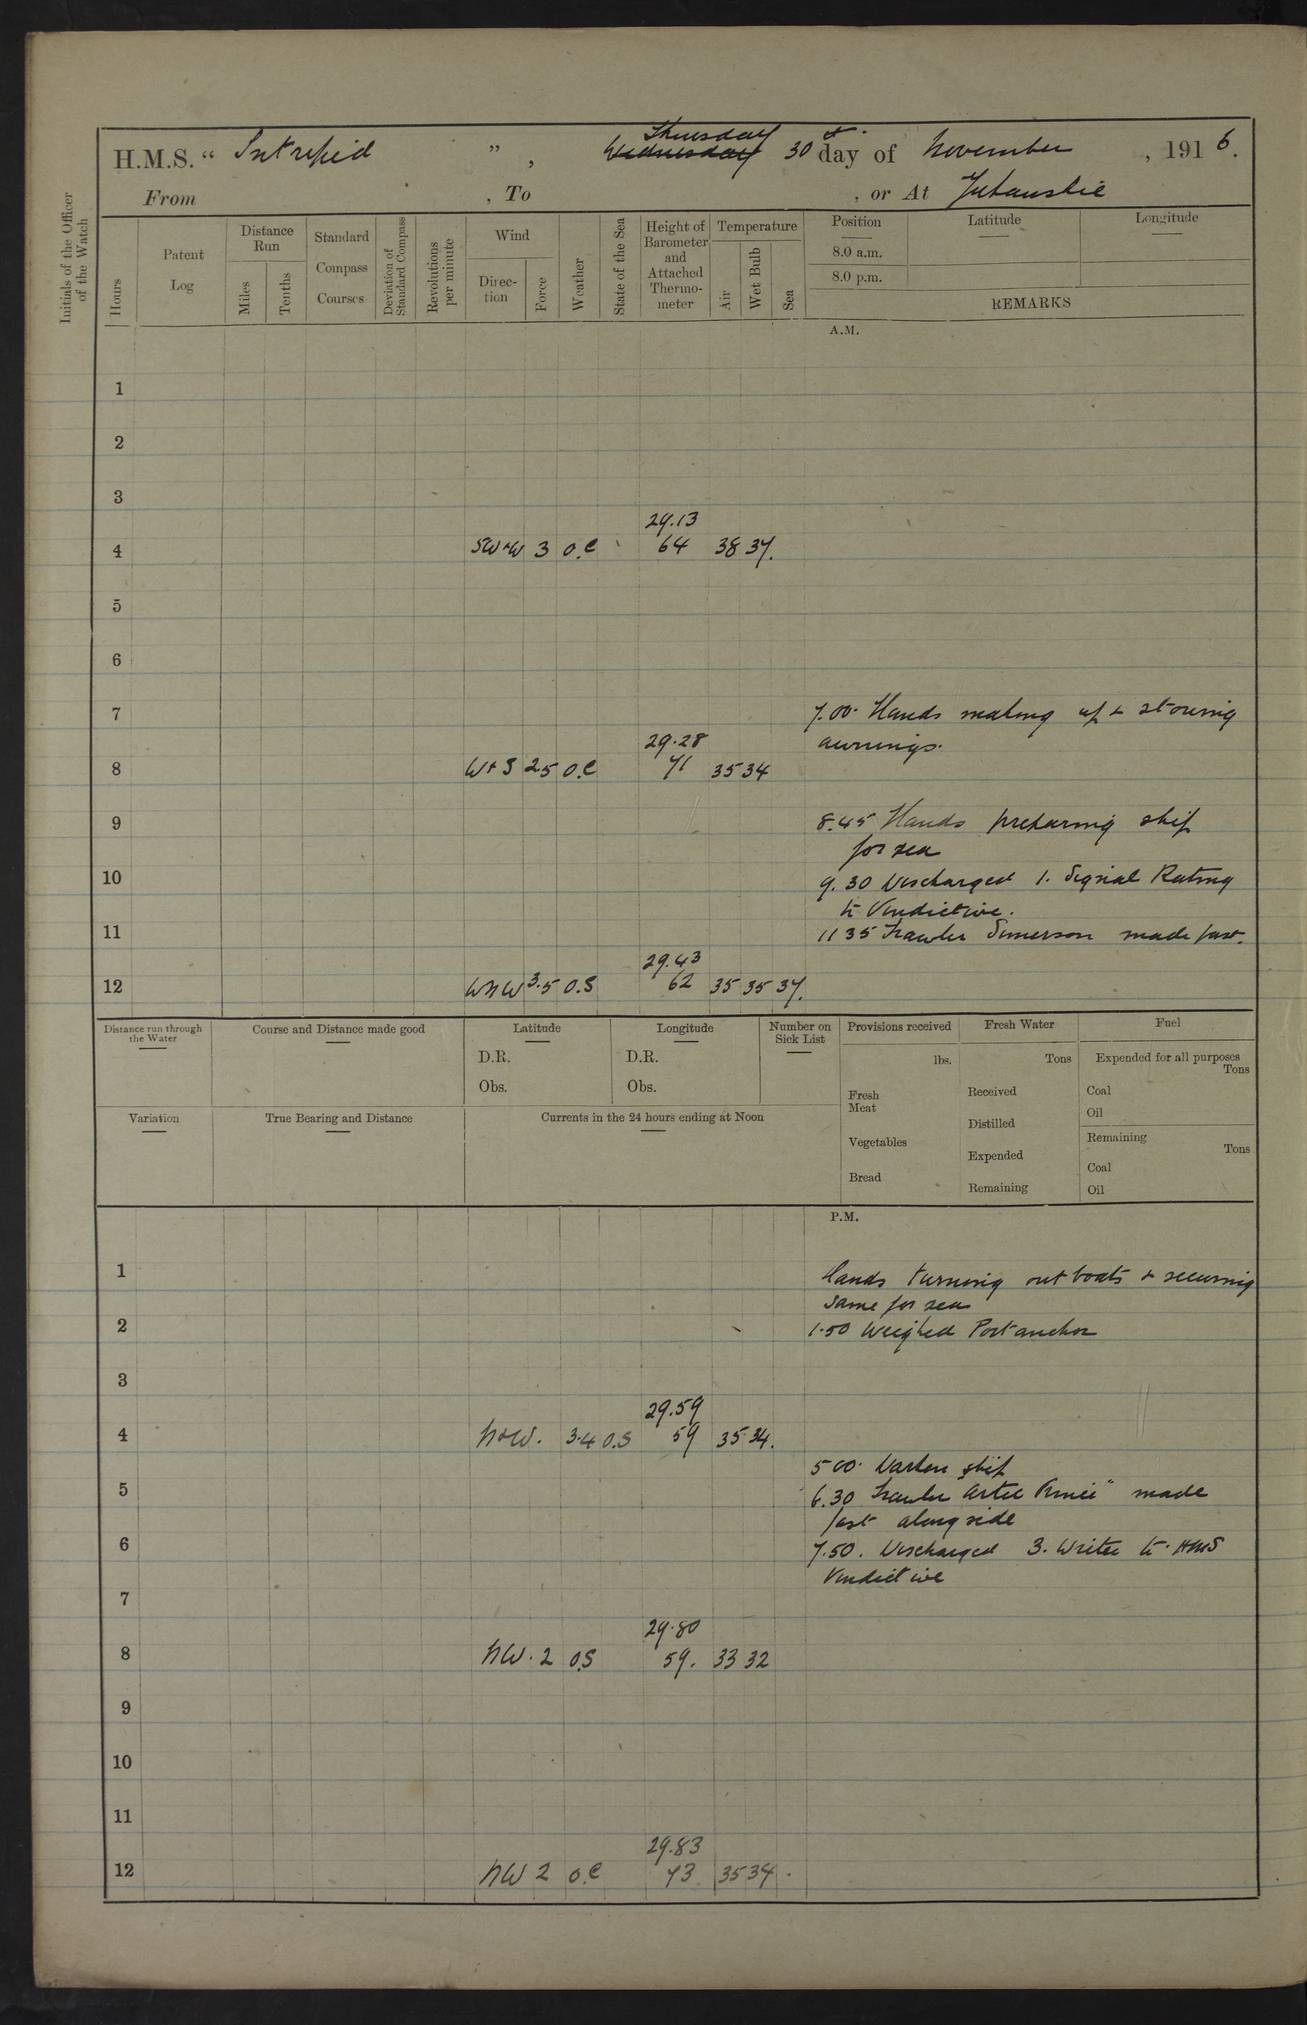 H.M.S. “ Intrepid ” , Wednesday Thursday 30th day of November , 1916.
From , To , or At Yukanskie
Initials of the Officer of the Watch
Hours
Patent Log
Distance Run
Miles
Tenths
Standard Compass Courses
Deviation of Standard Compass
Revolutions per minute
Wind
Direction
Force
Weather
State of the Sea
Height of Barometer and Attached Thermometer
Temperature
Air
Wet Bulb
Sea
Position
8.0 a.m.
8.0 p.m.
Latitude
Longitude
REMARKS
A.M.
1
2
3
29.13
4 SW+W 3 o.c 64 38 37.
5
6
7 7.00. Hands making up & stowing
29.28 awnings.
8 W+S 25 o.c 71 35 34
9 8.45 Hands preparing ship
for sea
10 9.30 Discharged 1. Signal Rating
to Vindictive.
11 11 35 Trawler Simerson made fast.
29.43
12 WNW 3.5 O.S 62 35 35 37.
Distance run through the Water
Course and Distance made good
Latitude
D.R.
Obs.
Longitude
D.R.
Obs.
Number on Sick List
Provisions received
lbs.
Fresh Meat
Vegetables
Bread
Fresh Water
Tons
Received
Distilled
Expended
Remaining
Fuel
Expended for all purposes
Tons
Coal
Oil
Remaining
Tons
Coal
Oil
Variation
True Bearing and Distance
Currents in the 24 hours ending at Noon
P.M.
1 Hands turning out boats & securing
same for sea
2 1.50 Weighed Port anchor
3
29.59
4 N+W. 3.4 O.S 59 35 34.
5 00. Darken ship
5 6.30 Trawler made
fast alongside
6 7.50. Discharged 3. Writer to HMS
Vindictive
7
29.80
8 NW. 2 O.S 59. 33 32
9
10
11
29.83
12 NW 2 o.c 73 35 34